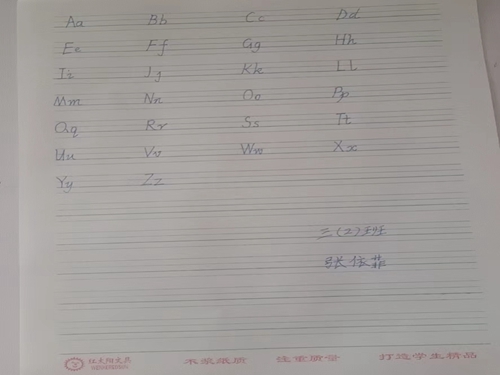 Aa Bb Cc Dd
Ee Ff Gg Hh
Ii Jj Kk Ll
Mm Nn Oo Pp
Qq Rr Ss Tt
Uu Vv Ww Xx
Yy Zz
三(2)班
张佳菲
木浆纸质 注重质量 打造学生精品